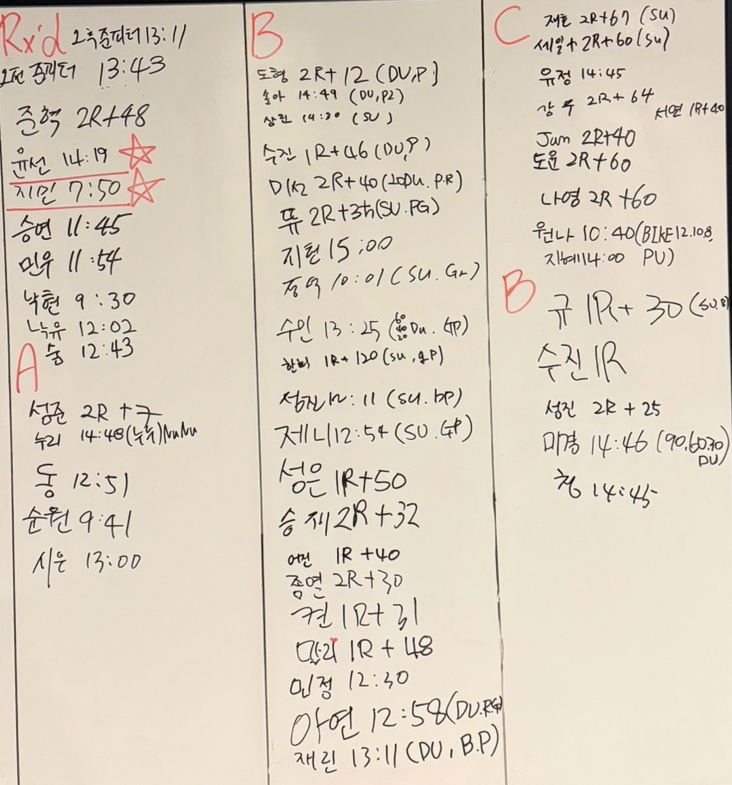 Rx'd 오후준피터 13:11
오전 준피터 13:43
준혁 2R+48
윤선 14:19
지민 7:50
승연 11:45
민우 11:54
낙현 9:30
누유 12:02
숭 12:43
A
성준 2R+7
누리 14:48(누누)NuNu
동 12:51
순원 9:41
시은 13:00
B
도형 2R+12 (DU,P)
솔아 14:49 (DU,P2)
상진 14:20 (SU)
수진 1R+46 (DU,P)
미선 2R+40(20DU.P.R)
뜌 2R+35(SU.PG)
지현 15:00
10:01 (SU.Gr)
수인 13:25 (60 40 20 Du. GP)
한비 1R+120(SU, g.P)
성진 12:11 (SU.BP)
제니 12:54 (SU.GP)
성은 1R+50
승제 2R+32
어진 1R+40
종열 2R+30
켠 1R+31
1R+48
민정 12:30
아연 12:58(DU.RG)
재린 13:11 (DU, B.P)
C
재호 2R+67 (SU)
세일+ 2R+60(SU)
유정 14:45
강우 2R+64
서연 1R+40
Jum 2R+40
도윤 2R+60
나영 2R+60
원나 10:40(BIKE12.108
지혜 14:00 PU)
B
규 1R+30(SU.
수진 1R
성진 2R+25
미경 14:46 (90,60,30 DU)
청 14:45